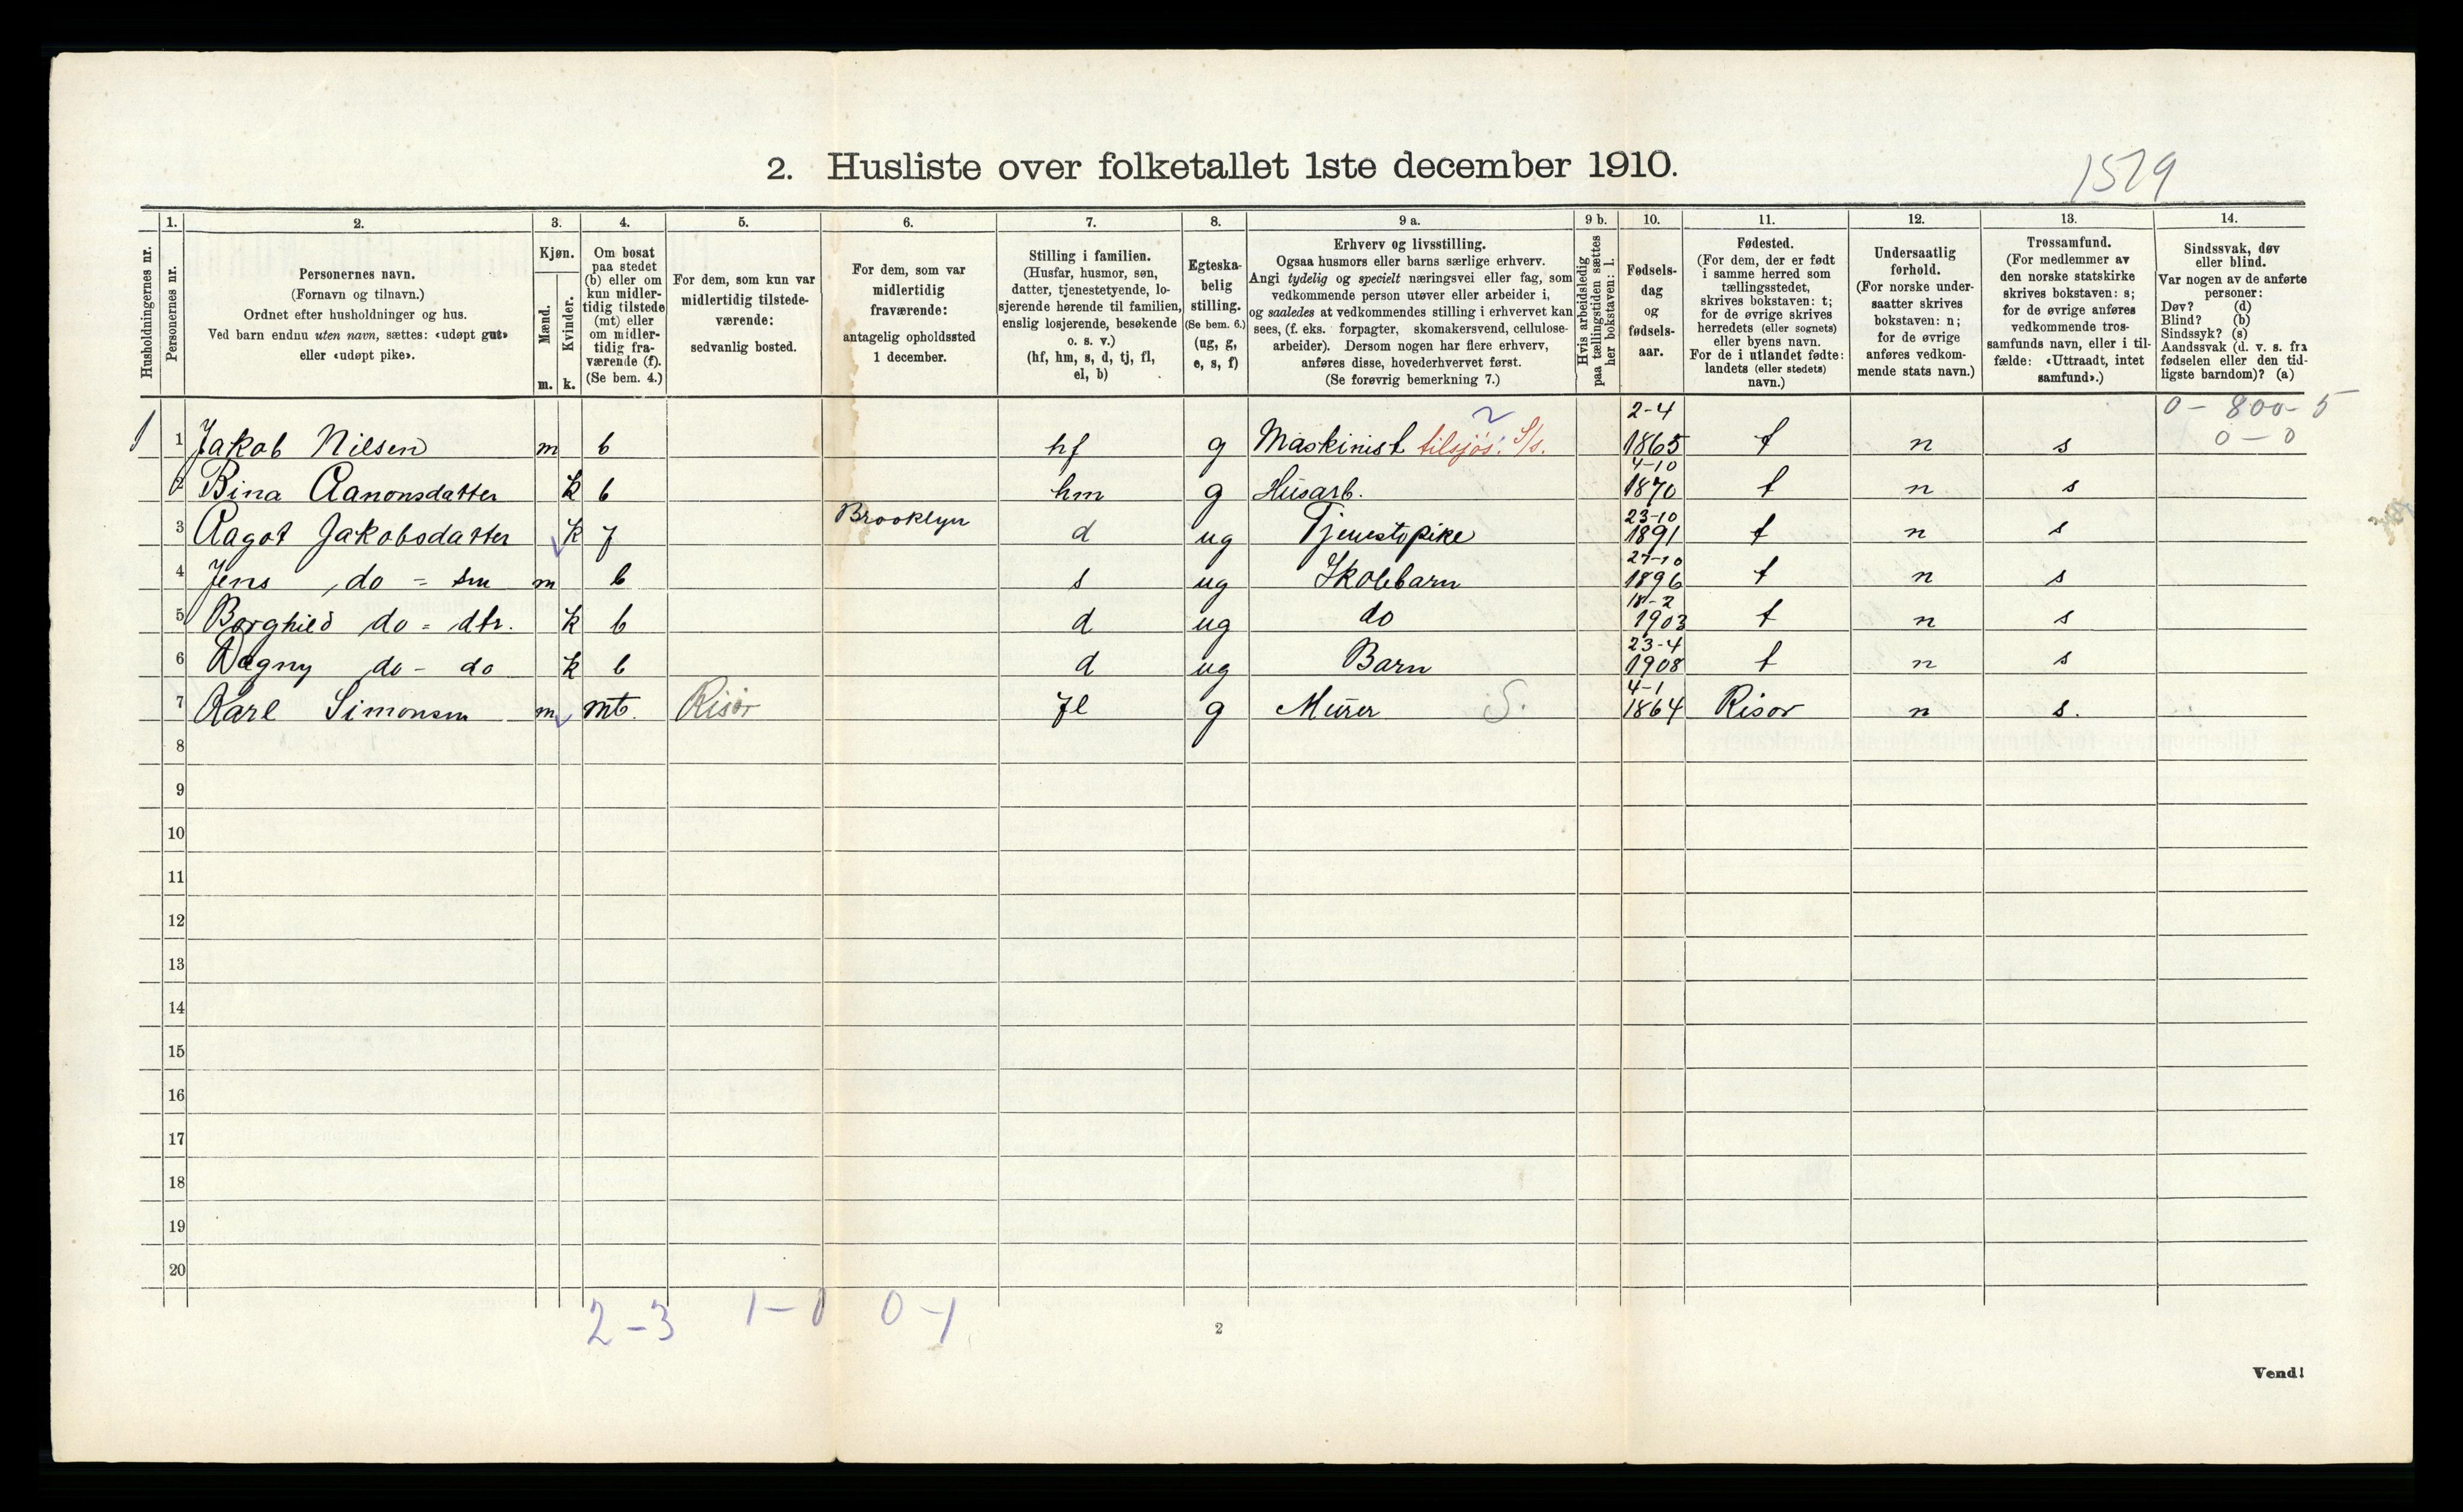 2. Husliste over folketallet 1ste december 1910.
1579
Husholdningernes nr.
1.
Personernes nr.
2.
Personernes navn.
(Fornavn og tilnavn.)
Ordnet efter husholdninger og hus.
Ved barn endnu uten navn, sættes: «udøpt gut»
eller «udøpt pike».
3.
Kjøn.
Mænd.
Kvinder.
m. k.
4.
Om bosat
paa stedet
(b) eller om
kun midler-
tidig tilstede
(mt) eller
om midler-
tidig fra-
værende (f).
(Se bem. 4.)
5.
For dem, som kun var
midlertidig tilstede-
værende:
sedvanlig bosted.
6.
For dem, som var
midlertidig
fraværende:
antagelig opholdssted
1 december.
7.
Stilling i familien.
(Husfar, husmor, søn,
datter, tjenestetyende, lo-
sjerende hørende til familien,
enslig losjerende, besøkende
o. s. v.)
(hf, hm, s, d, tj, fl,
el, b)
8.
Egteska-
belig
stilling.
(Se bem. 6.)
(ug, g,
e, s, f)
9 a.
Erhverv og livsstilling.
Ogsaa husmors eller barns særlige erhverv.
Angi tydelig og specielt næringsvei eller fag, som
vedkommende person utøver eller arbeider i,
og saaledes at vedkommendes stilling i erhvervet kan
sees, (f. eks. forpagter, skomakersvend, cellulose-
arbeider). Dersom nogen har flere erhverv,
anføres disse, hovederhvervet først.
(Se forøvrig bemerkning 7.)
9 b.
Hvis arbeidsledig
paa tællingstiden sættes
her bokstaven: l.
10.
Fødsels-
dag
og
fødsels-
aar.
11.
Fødested.
(For dem, der er født
i samme herred som
tællingsstedet,
skrives bokstaven: t;
for de øvrige skrives
herredets (eller sognets)
eller byens navn.
For de i utlandet fødte:
landets (eller stedets)
navn.)
12.
Undersaatlig
forhold.
(For norske under-
saatter skrives
bokstaven: n;
for de øvrige
anføres vedkom-
mende stats navn.)
13.
Trossamfund.
(For medlemmer av
den norske statskirke
skrives bokstaven: s;
for de øvrige anføres
vedkommende tros-
samfunds navn, eller i til-
fælde: «Uttraadt, intet
samfund».)
14.
Sindssvak, døv
eller blind.
Var nogen av de anførte
personer:
Døv? (d)
Blind? (b)
Sindssyk? (s)
Aandssvak (d. v. s. fra
fødselen eller den tid-
ligste barndom)? (a)
0 - 800 - 5
0 - 0
1 1 Jakob Nilsen m b hf g Maskinist tilsjøs. S/s. 2-4 1865 t n s
2 Bina Aanonsdatter k b hm g Husarb. 4-10 1870 t n s
3 Aagot Jakobsdatter k f Brooklyn d ug Tjenestepike 23-10 1891 t n s
4 Jens do = sen m b s ug Skolebarn 27-10 1896 t n s
5 Borghild do = dtr. k b d ug do 18-2 1903 t n s
6 Dagny do - do k b d ug Barn 23-4 1908 t n s
7 Karl Simonsen m mt. Risør fl g Murer S. 4-1 1864 Risør n s.
8
9
10
11
12
13
14
15
16
17
18
19
20
2 - 3 1 - 0 0 - 1
2
Vend!